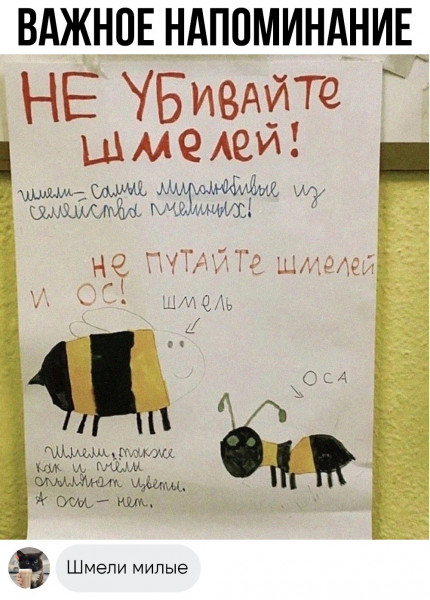 ВАЖНОЕ НАПОМИНАНИЕ
НЕ УБИВАЙТЕ
ШМЕЛЕЙ!
шмели – самые миролюбивые из
семейства пчелиных!
НЕ ПУТАЙТЕ ШМЕЛЕЙ
И ОС!
ШМЕЛЬ
ОСА
Шмели, также
как и пчёлы
опыляют цветы.
А осы – нет.
Шмели милые